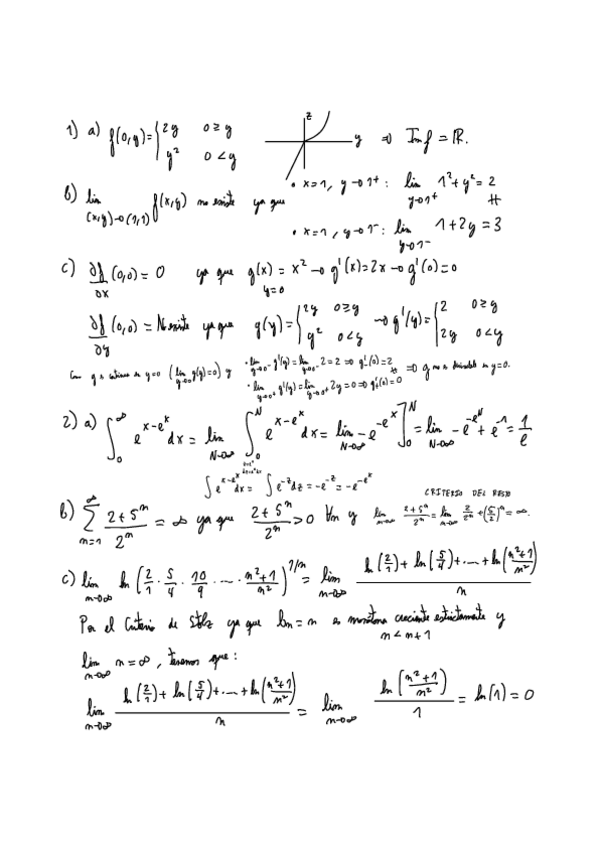 1) a) f(0,y) = { 2y 0 ≥ y ; y² 0 < y    z y ⇒ Im f = ℝ.
b) lim (x,y)→(1,1) f(x,y) no existe ya que • x=1, y→1⁺: lim y→1⁺ 1²+y² = 2
≠
• x=1, y→1⁻: lim y→1⁻ 1+2y = 3
c) ∂f/∂x (0,0) = 0 ya que g(x) = x² → g'(x) = 2x → g'(0) = 0
y=0
∂f/∂y (0,0) = No existe ya que g(y) = { 2y 0 ≥ y ; y² 0 < y → g'(y) = { 2 0 ≥ y ; 2y 0 < y
Como g es continua en y=0 (lim y→0 g(y)=0) y • lim y→0⁻ g'(y) = lim y→0⁻ 2 = 2 ⇒ g'₋(0) = 2
≠ ⇒ g no es derivable en y=0.
• lim y→0⁺ g'(y) = lim y→0⁺ 2y = 0 ⇒ g'₊(0) = 0
2) a) ∫₀^∞ e^(x-e^x) dx = lim N→∞ ∫₀^N e^(x-e^x) dx = lim N→∞ -e^(-e^x) ]₀^N = lim N→∞ -e^(-e^N) + e^(-1) = 1/e
z=e^x
dz=e^x dx
∫ e^(x-e^x) dx = ∫ e^(-z) dz = -e^(-z) = -e^(-e^x)
CRITERIO DEL RESTO
b) ∑ n=1 ^∞ (2+5ⁿ)/2ⁿ = ∞ ya que (2+5ⁿ)/2ⁿ > 0 ∀n y lim n→∞ (2+5ⁿ)/2ⁿ = lim n→∞ 2/2ⁿ + (5/2)ⁿ = ∞.
c) lim n→∞ ln (2/1 · 5/4 · 10/9 · ... · (n²+1)/n²)^(1/n) = lim n→∞ (ln(2/1) + ln(5/4) + .... + ln((n²+1)/n²))/n
Por el Criterio de Stolz ya que bn = n es monótona creciente estrictamente y
n < n+1
lim n→∞ n = ∞, tenemos que:
lim n→∞ (ln(2/1) + ln(5/4) + .... + ln((n²+1)/n²))/n = lim n→∞ ln((n²+1)/n²)/1 = ln(1) = 0